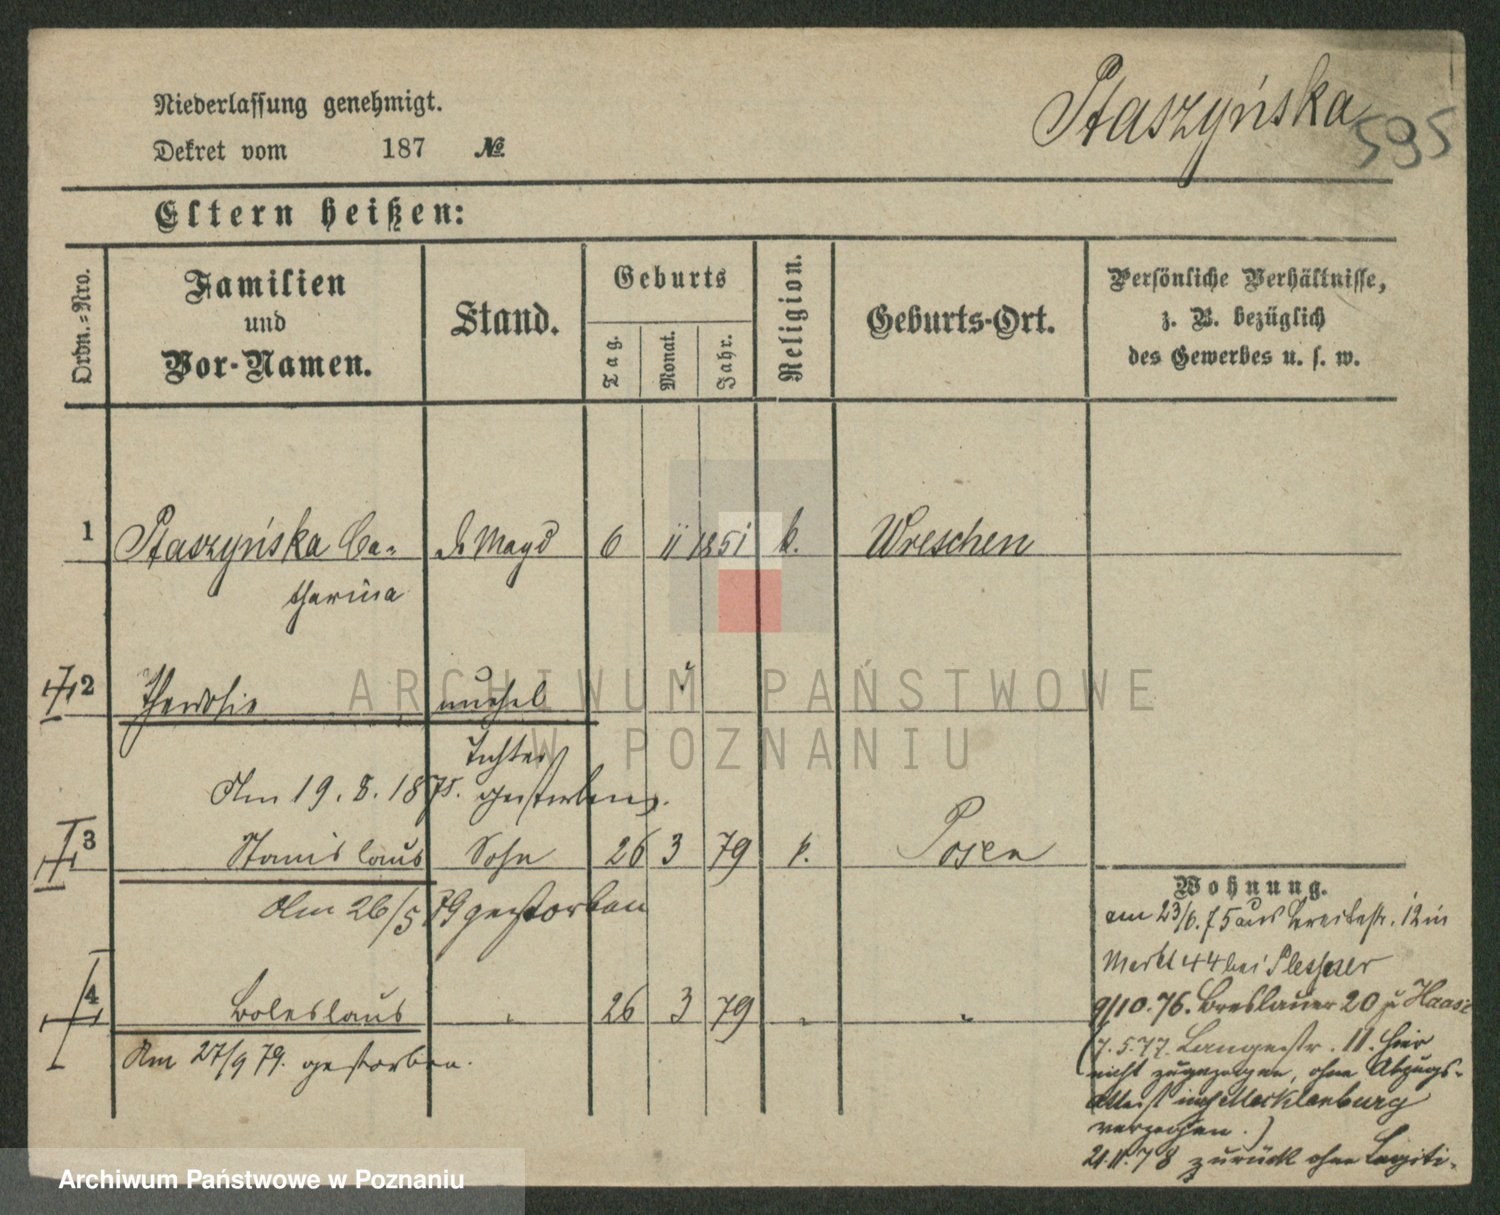 Niederlassung genehmigt.
Dekret vom 187 №
Ptaszyńska
595
Eltern heißen:
Ordn.-Nro.
Familien und Vor-Namen.
Stand.
Geburts
Tag.
Monat.
Jahr.
Religion.
Geburts-Ort.
Persönliche Verhältnisse,
z. B. bezüglich
des Gewerbes u. s. w.
1 Ptaszyńska Ca- Magd 6 11 1851 k. Wreschen
tharina
2 Theodosia unehel
Tochter
Am 19. 8. 1875. gestorben.
3 Stanislaus Sohn 26 3 79 k. Posen
Am 26/5 79 gestorben
4 Boleslaus " 26 3 79 " "
Am 27/9 79. gestorben.
Wohnung.
am 23/6. 75 aus 12 in
Markt 44 bei Plessner
9/10. 76. Breslauer 20 z Haase
(7. 5. 77. Langestr. 11. hier
nicht zugezogen, ohne Abzugs-
Attest nach Mecklenburg
verzogen.)
21.11.78 zurück ohne Legiti-
ARCHIWUM PAŃSTWOWE
W POZNANIU
Archiwum Państwowe w Poznaniu